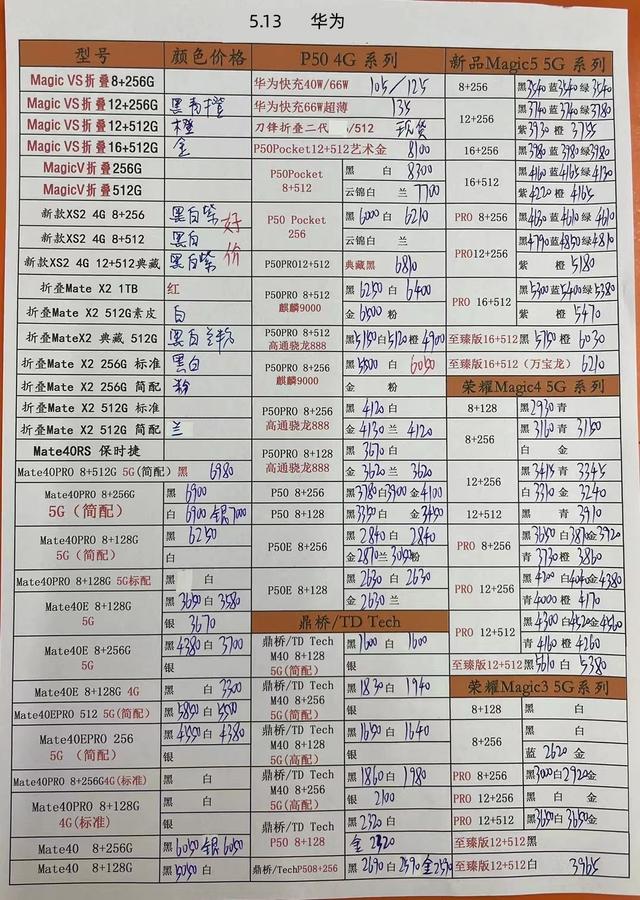 5.13 华为
型号 颜色价格
Magic VS折叠8+256G
Magic VS折叠12+256G 黑青橙
Magic VS折叠12+512G 橙
Magic VS折叠16+512G 金
MagicV折叠256G
MagicV折叠512G
新款XS2 4G 8+256 黑白紫 好
新款XS2 4G 8+512 黑白 价
新款XS2 4G 12+512典藏 黑白紫
折叠Mate X2 1TB 红
折叠Mate X2 512G素皮 白
折叠MateX2 典藏 512G 黑白兰粉
折叠Mate X2 256G 标准 黑白
折叠Mate X2 256G 简配 粉
折叠Mate X2 512G 标准
折叠Mate X2 512G 简配 兰
Mate40RS 保时捷
Mate40PRO 8+512G 5G(简配) 黑 6980
Mate40PRO 8+256G 黑 6900
5G(简配) 白 6900 银7000
Mate40PRO 8+128G 黑 6250
5G(简配) 白
Mate40PRO 8+128G 5G标配 黑 白
Mate40E 8+128G 黑 3650 白 3580
5G 银 3670
Mate40E 8+256G 黑 4380 白 3700
5G 银
Mate40E 8+128G 4G 黑 白 3300
Mate40EPRO 512 5G(简配) 黑 5850 白
Mate40EPRO 256 黑 白 4380
5G (简配) 银
Mate40PRO 8+256G4G(标准) 黑 白
Mate40PRO 8+128G 黑 白
4G(标准) 银
Mate40 8+256G 黑 6050 银 6050
Mate40 8+128G 黑 白
P50 4G 系列
华为快充40W/66W 105/125
华为快充66W超薄 135
刀锋折叠二代 /512 现货
P50Pocket12+512艺术金 8100
P50Pocket 黑 白 8300
8+512 云锦白 兰 7700
P50 Pocket 黑 6000 白 6210
256 云锦白 兰
P50PRO12+512 典藏黑 6810
P50PRO 8+512 黑 6250 白 6400
麒麟9000 金 6500 粉
P50PRO 8+512 黑 白5120 橙 4900
高通骁龙888
P50PRO 8+256 黑 白 6050
麒麟9000 金 粉
P50PRO 8+256 黑 4120 白
高通骁龙888 金 4130 兰 4120
P50PRO 8+128 黑 3670 白
高通骁龙888 金 3620 兰 3620
P50 8+256 黑 3780 白 3900 金 4100
P50 8+128 黑 3350 白 金 3450
P50E 8+256 黑 2840 白 2840
金 2870 兰 3050 粉
P50E 8+128 黑 2630 白 2630
金 2630 兰
鼎桥/TD Tech
鼎桥/TD Tech 黑 1600 白 1600
M40 8+128
5G(简配) 银
鼎桥/TD Tech 黑 1830 白 1940
M40 8+256
5G(简配) 银
鼎桥/TD Tech 黑 1650 白 1640
M40 8+128
5G(高配) 银
鼎桥/TD Tech 黑 1860 白 1980
M40 8+256
5G(高配) 银 2100
鼎桥/TD Tech 黑 2320 白
P50 8+128 金 2320
鼎桥/TechP508+256 黑 2690 白 2590 金 2590
新品Magic5 5G 系列
8+256 黑 3540 蓝 3540 绿 3540
12+256 黑 3740 蓝 3740 绿 3780
紫 3930 橙 3755
16+256 黑 3980 蓝 3980 绿 3980
16+512 黑 4160 蓝 4165 绿 4130
紫 4220 橙 4165
PRO 8+256 黑 4630 蓝 4610 绿 4610
PRO12+256 黑 4790 蓝 4850 绿 4810
紫 橙 5180
PRO 16+512 黑 5300 蓝 5400 绿 5380
紫 橙 5470
至臻版16+512 黑 5750 橙 6030
至臻版16+512(万宝龙) 6210
荣耀Magic4 5G 系列
8+128 黑 2930 青
8+256 黑 3160 青 3150
白 金
12+256 黑 3415 青 3345
白 3310 金 3240
12+512 黑 青 3910
PRO 8+256 黑 3650 白 3870 金 3920
青 3730 橙 3860
PRO 12+256 黑 4200 白 4040 金 4380
青 4000 橙 4170
PRO 12+512 黑 4300 白 4520 金 4560
青 4160 橙 4260
至臻版12+512 黑 5610 白 5380
荣耀Magic3 5G系列
8+128 黑 白
8+256 黑 白
蓝 2620 金
PRO 8+256 黑 3000 白 2920 金
PRO 12+256 黑 白 金
PRO 12+512 黑 3650 白 3650 金
至臻版12+512 黑
至臻版12+512 白 3965